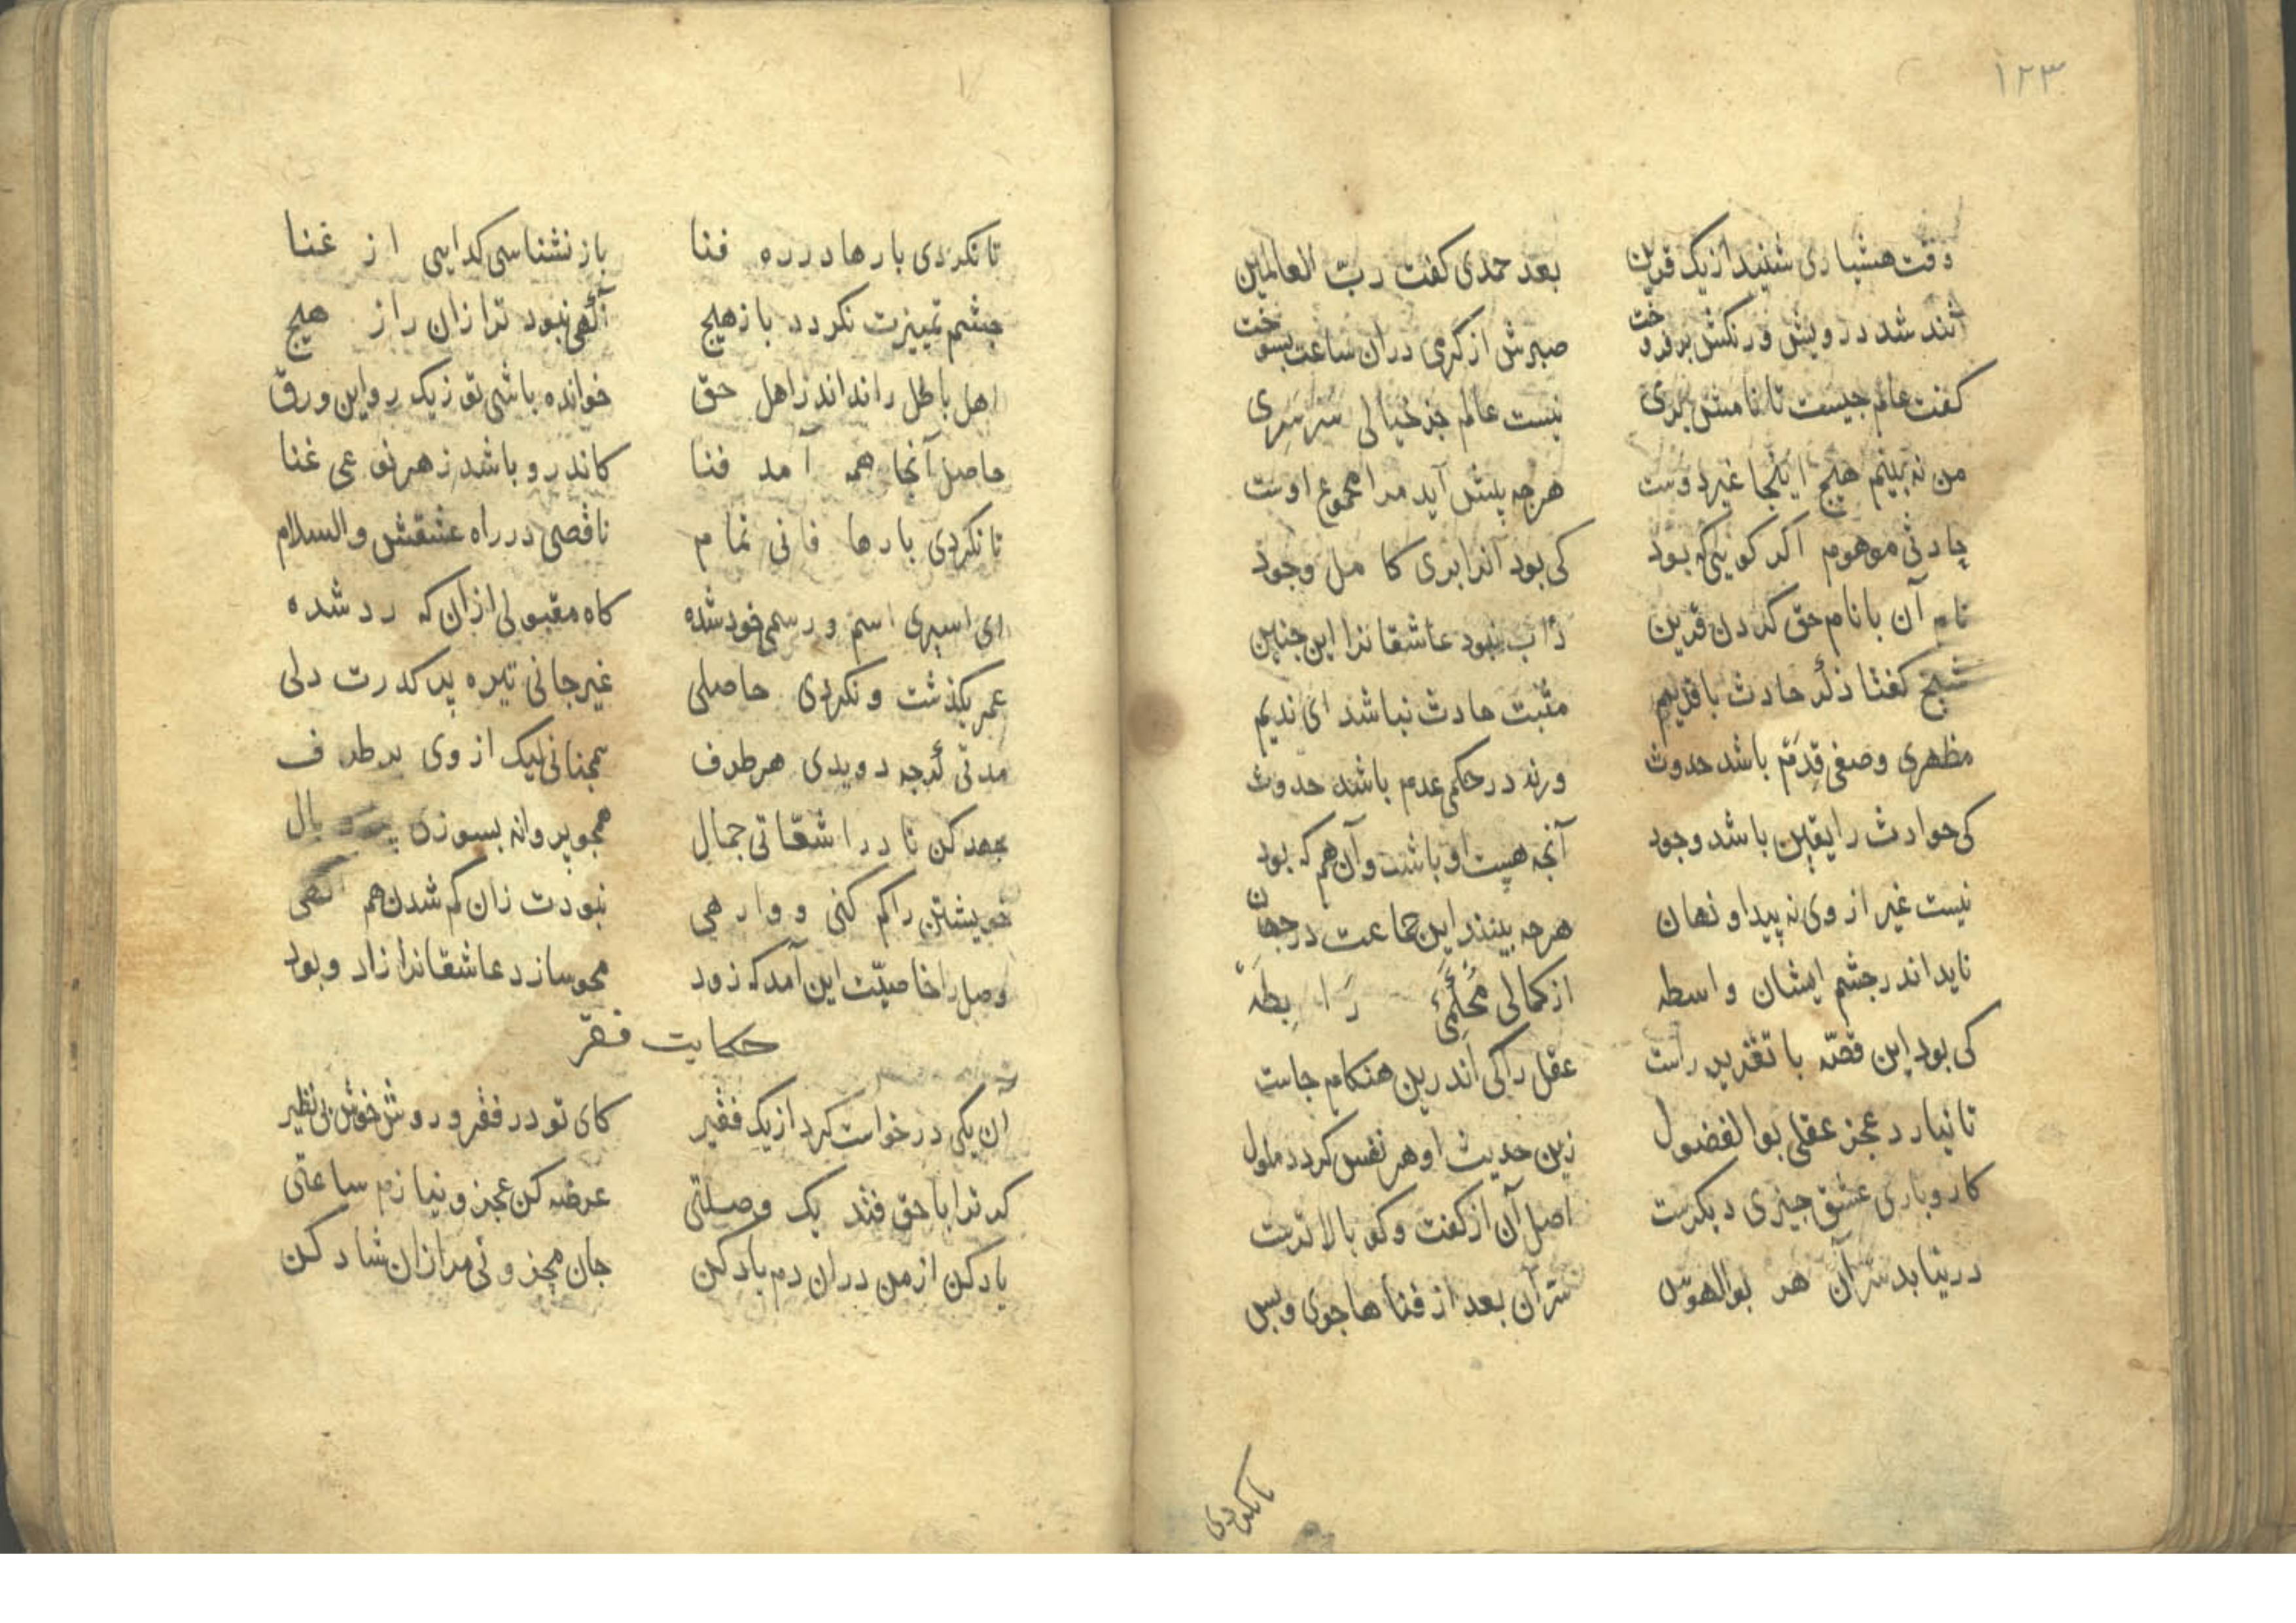 ۱۲۳
وقت هشیاری شنید از یک قرین بعد حمدی کفت ربّ العالمین
تند شد درویش و رنکش برفروخت صبرش از کرمی دران ساعت بسوخت
کفت عالم جیست تا نامش بری نیست عالم جز خیالی سَرسَری
من نه بینم هیچ اینجا غیر دوست هرجه پیش آید مرا مجموع اوست
موهوم اکر کویی که بود کی بود انرا بری کامل وجود
نام آن با نام حق کردن قرین دٲب نبود عاشقانرا این جنین
شیخ کفتا ذکر حادث با قدیم مثبت حادث نباشد ای ندیم
مظهری وصفی قِدَم باشد حدوث ورنه در حکمی عدم باشد حدوث
کی حوادث را یقین باشد وجود آنجه هست او باشد و آن هم که بود
نیست غیر از وی نه پیدا و نهان هرجه بینند این جماعت در جهان
ناید اندر جشم ایشان واسطه از کمالی رَابِطَهْ
کی بود این قصّه با تقدیر راست عقل را کی اندرین هنکام جاست
تا نیارد عجز عقلی بوالفضول زین حدیث او هر نفس کردد ملول
کاروباری عشق جیزی دیکرست اصل آن از کفت و کو بالاترست
درنیابد سرّ آن هر بوالهوس سرّ آن بعد از فناها جوی و بس
تا نکردی
تا نکردی بارها در ره فنا باز نشناسی کدایی از غنا
جشم تمییزت نکردد باز هیچ آکهی نبود ترا زان راز هیچ
اهل باطل را نداند ز اهل حق خوانده باشی تو زیک رو این ورق
حاصل آنجا همه آمد فنا کاندرو باشد ز هر نوعی غنا
تا نکردی بارها فانی تمام ناقصی در راه عشقش والسلام
ای اسیری اسم و رسمی خود شده کاه مقبولی ازان که رد شده
عمر بکذشت و نکردی حاصلی غیر جانی تیره پر کدرت دلی
مدتی کرجه دویدی هر طرف همجنانی لیک از وی بر طرف
جهد کن تا در اشعّاتی جمال همجو پروانه بسوزی پر و بال
خویشتن را کم کنی و وارهی نبودت زان کم شدن هم آکهی
وصل را خاصیّت این آمد که زود محو سازد عاشقانرا زاد و بود
حکایت فقر
آن یکی درخواست کرد از یک فقیر کای تو در فقر و روش خوش بی نظیر
کر ترا با حق فتد یک وصلتی عرضه کن عجز و نیازم ساعتی
یاد کن از من دران دم یاد کن جان مرا زان شاد کن